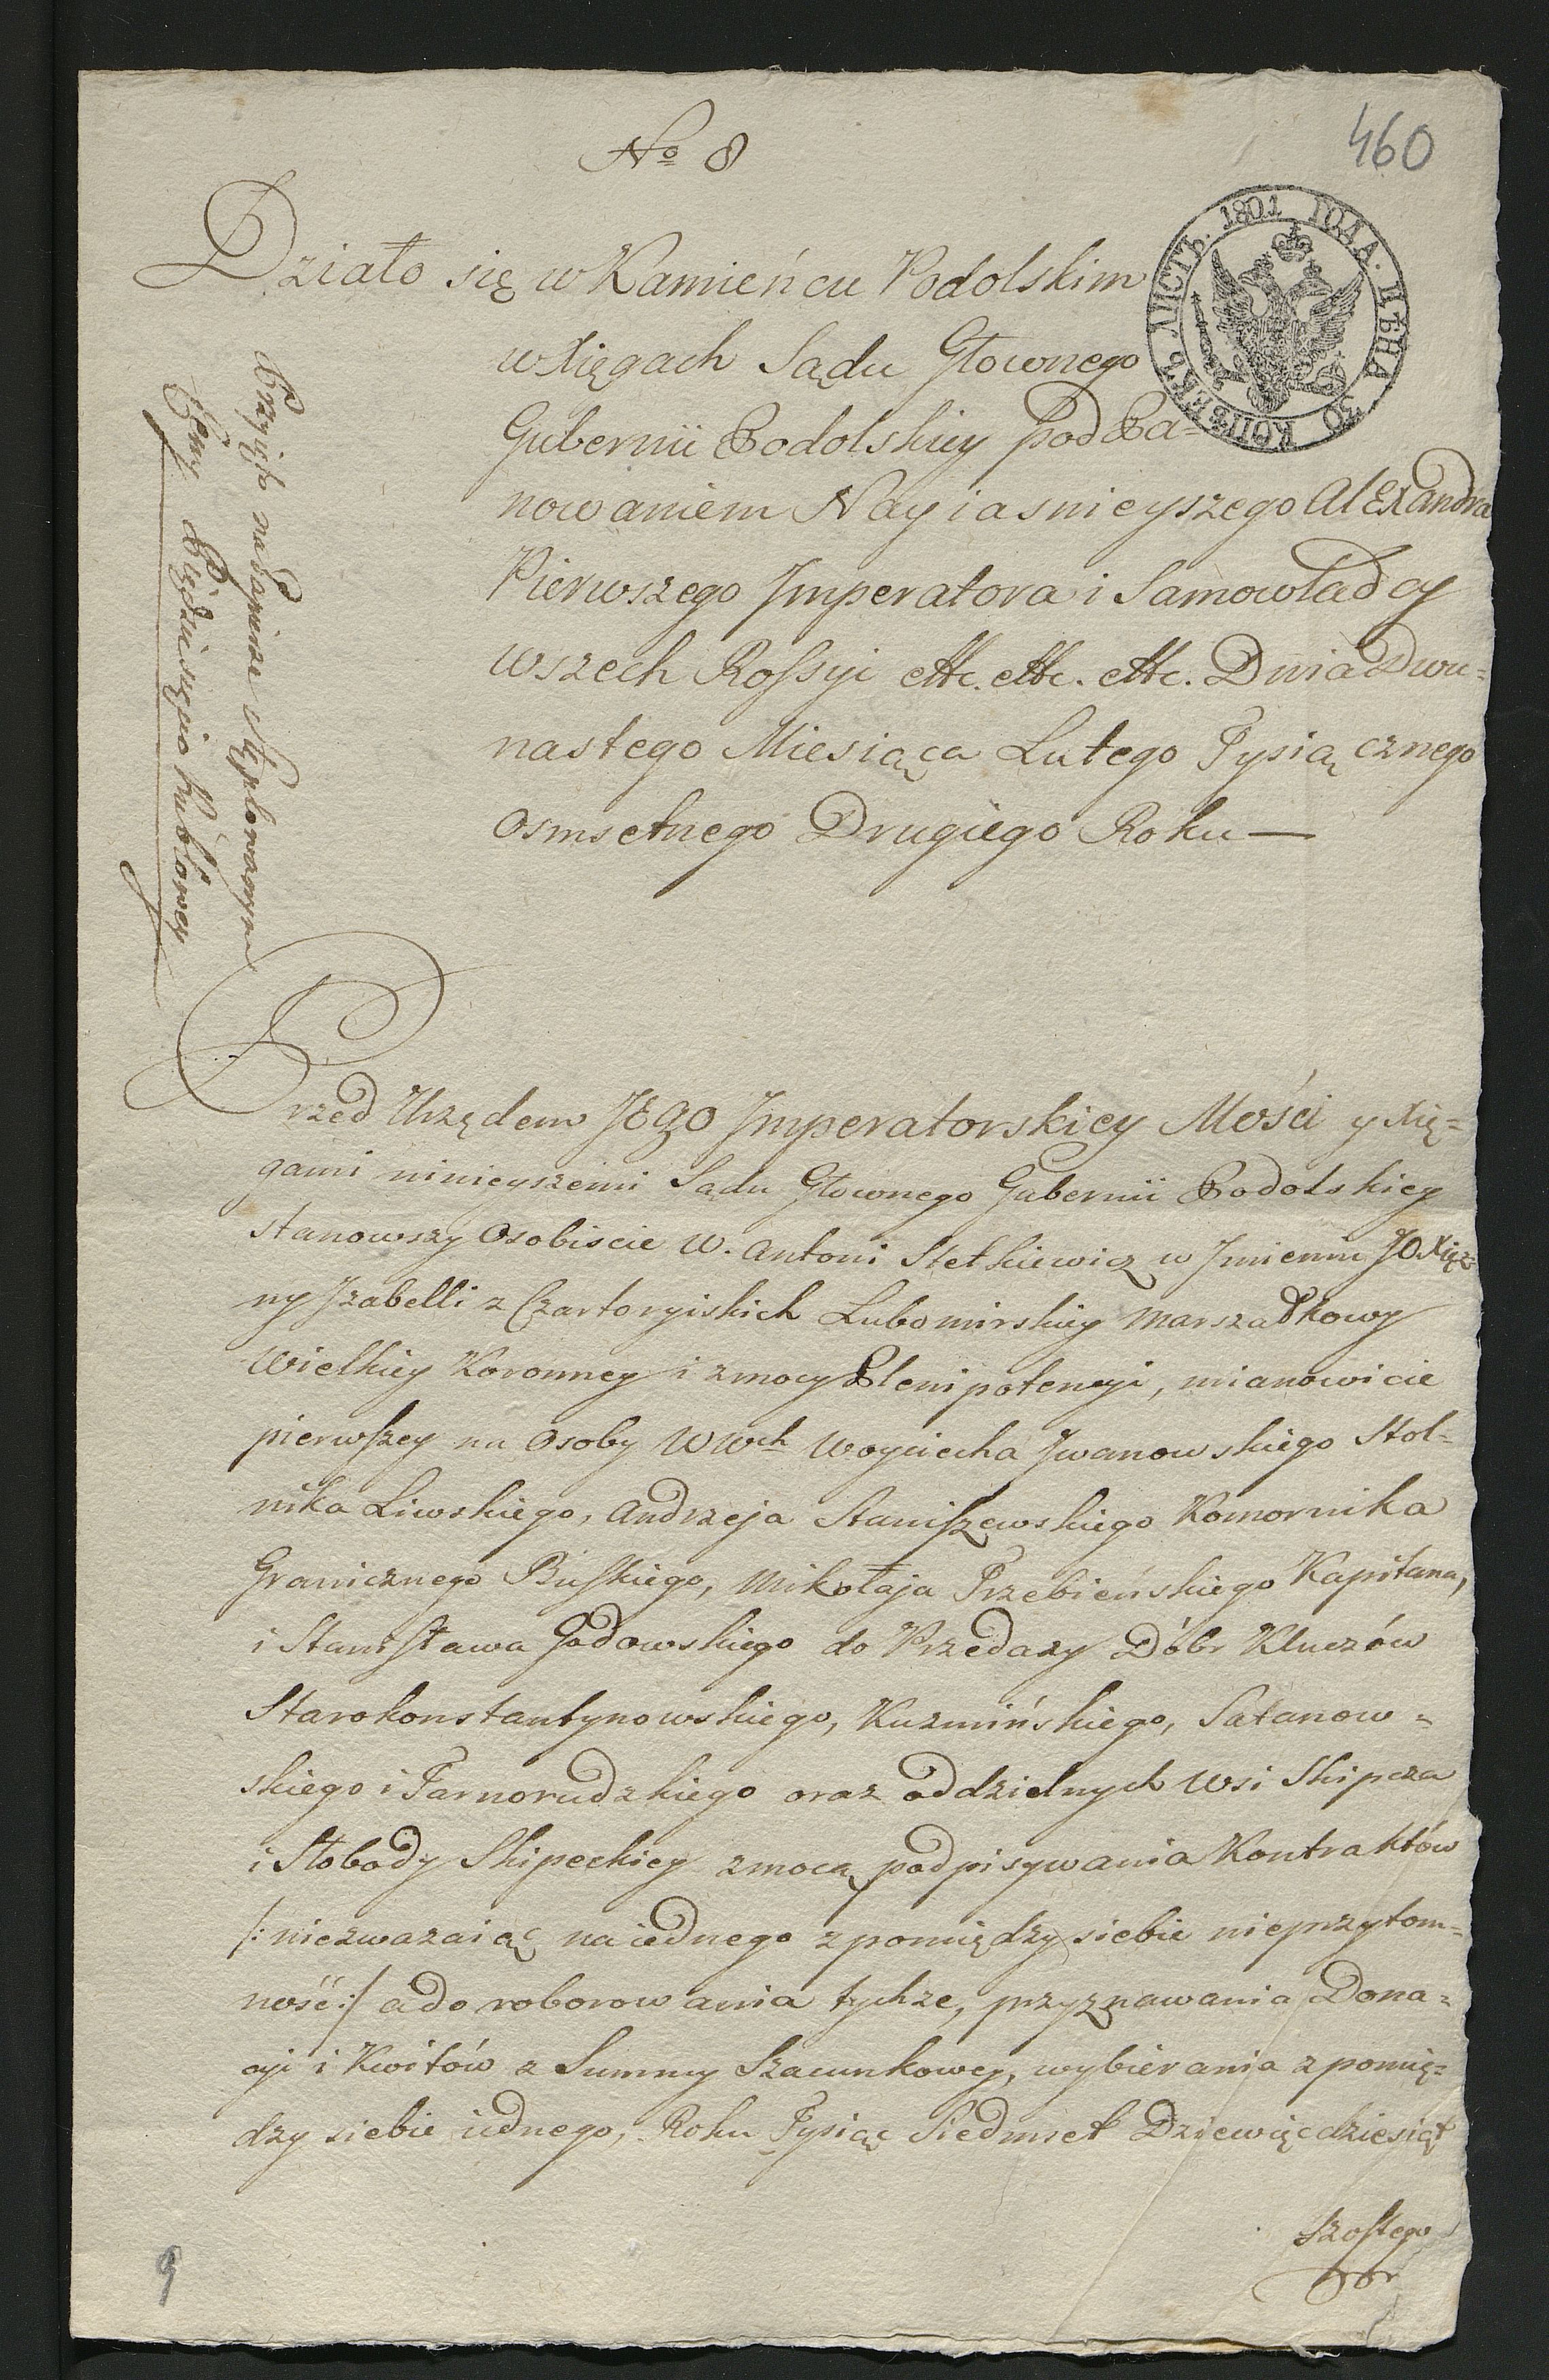 460
No 8
ЛИСТЪ. 1801 ГОДА. ЦѢНА 30 КОПѢЕКЪ.
Działo się w Kamieńcu Podolskim
w Xięgach Sądu Głownego
Gubernii Podolskiey pod Pa=
nowaniem Nayiasnieyszego Alexandra
Pierwszego Imperatora i Samowładcy
wszech Rossyi etc. etc. etc. Dnia Dwu=
nastego Miesiąca Lutego Tysiącznego
osmsetnego Drugiego Roku —
Przyięto na Papierze Stęplowanym
Ceny Pięćdziesięcio kublowey
Przed Urzędem JEgo Imperatorskiey Mości y Xię=
gami ninieyszemi Sądu Głownego Gubernii Podolskiey
stanowszy osobiscie W. Antoni Stetkiewicz w Jmieniu JO Xięż=
ny Jzabelli z Czartoryiskich Lubomirskiey Marszałkowy
Wielkiey Koronney i zmocy Plenipotencyi, mianowicie
pierwszey na osoby WWch Woyciecha Jwanowskiego Stol=
nika Liwskiego, Andrzeja Staniszewskiego Komornika
Granicznego Buskiego, Mikołaja Trzebieńskiego Kapitana,
i Stanisława Godowskiego do Przedaży Dóbr Kluczów
Starokonstantynowskiego, Kuzmińskiego, Satanow=
skiego i Tarnorudzkiego oraz oddzielnych Wsi Skipcza
i Słobody Skipeckiey z mocą podpisywania Kontraktów
/: niezwazaiąc na iednego z pomiędzy siebie nieprzytom=
ność :/ a do roborowania tychże, przyznawania Dona=
cyi i Kwitów z Summy Szacunkowey, wybierania z pomię=
dzy siebie iednego, Roku Tysiąc Siedmset Dziewięćdziesiąt
szostego
9